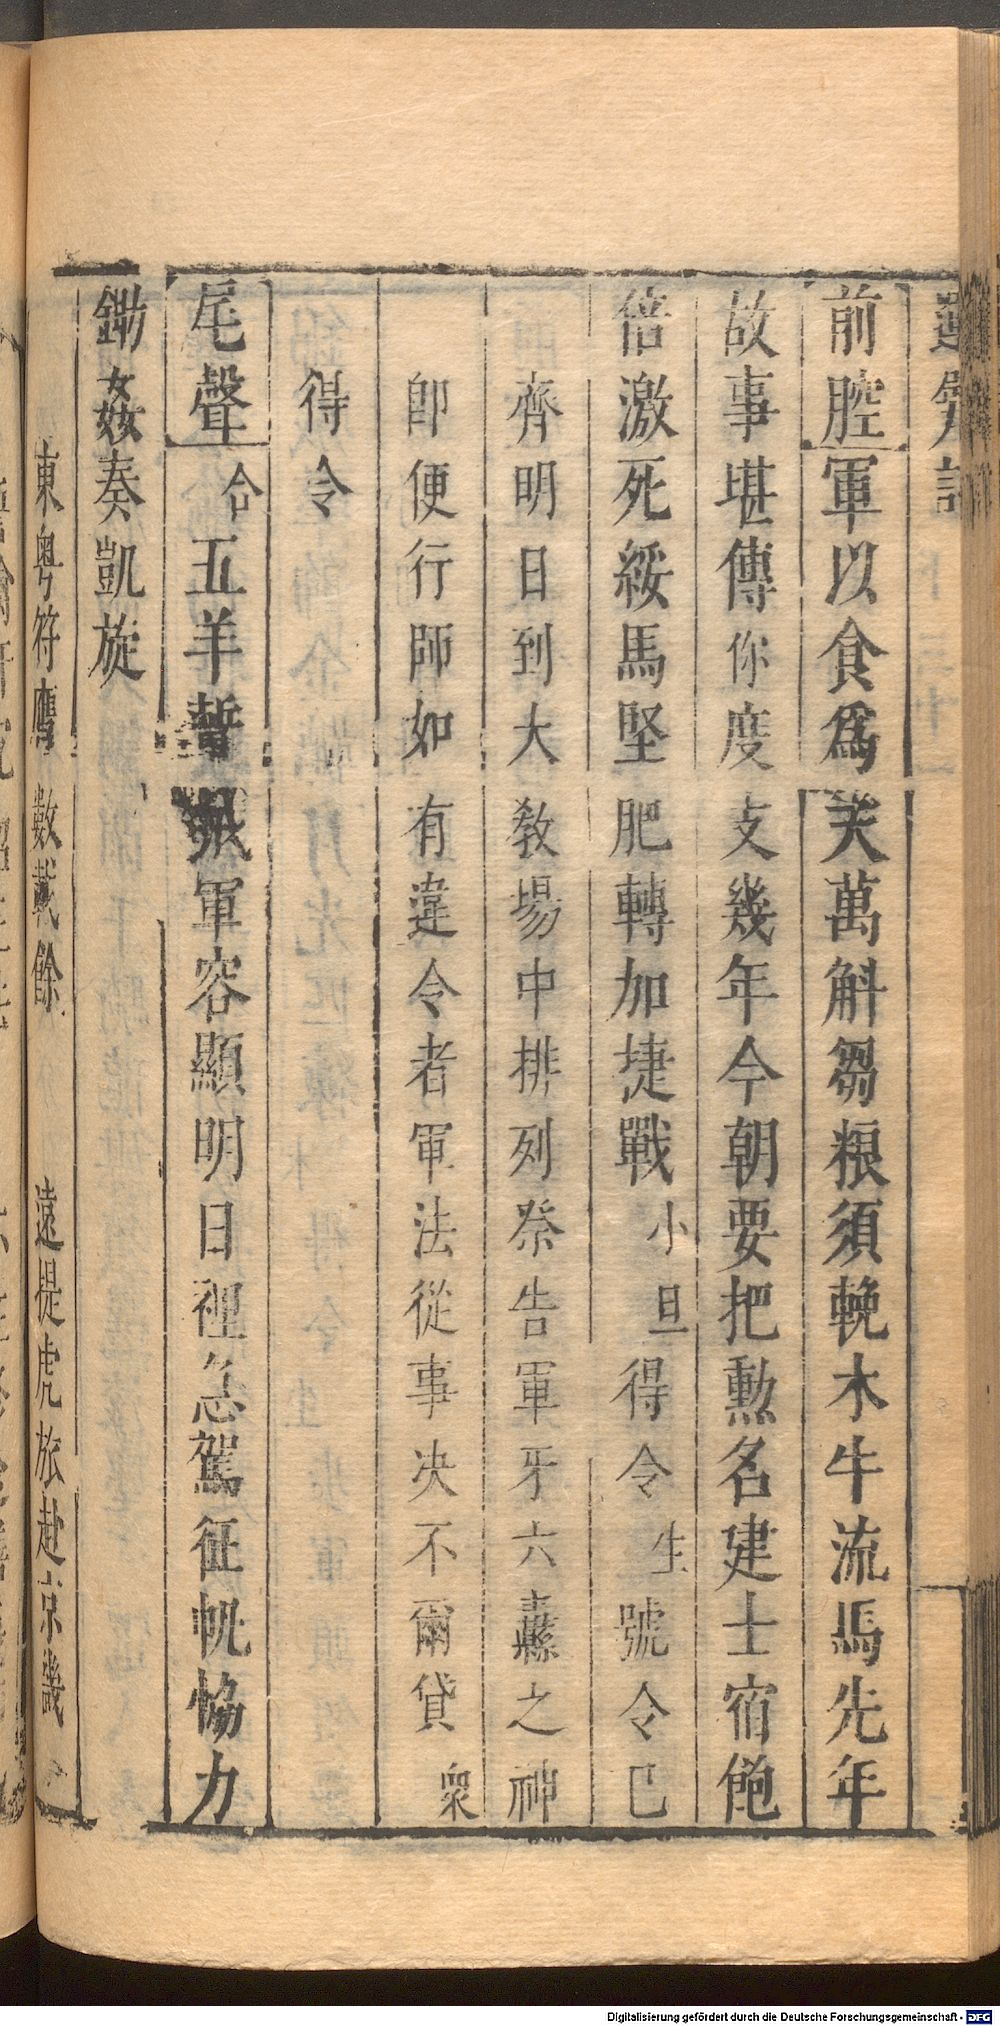 前腔軍以食爲天萬斛芻粮須輓木牛流馬先年
故事堪傳你度支幾年今朝要把勲名建士宿飽
倍激死綏馬堅肥轉加捷戰小旦得令生號令已
齊明日到大教場中排列祭告軍牙六纛之神
卽便行師如有違令者軍法從事决不爾貸衆
得令
尾聲合五羊暫軍容顯明日裡急駕征帆恊力
鋤姦奏凱旋
東粤符膺數載餘　遠提虎旅赴京畿
Digitalisierung gefördert durch die Deutsche Forschungsgemeinschaft - DFG